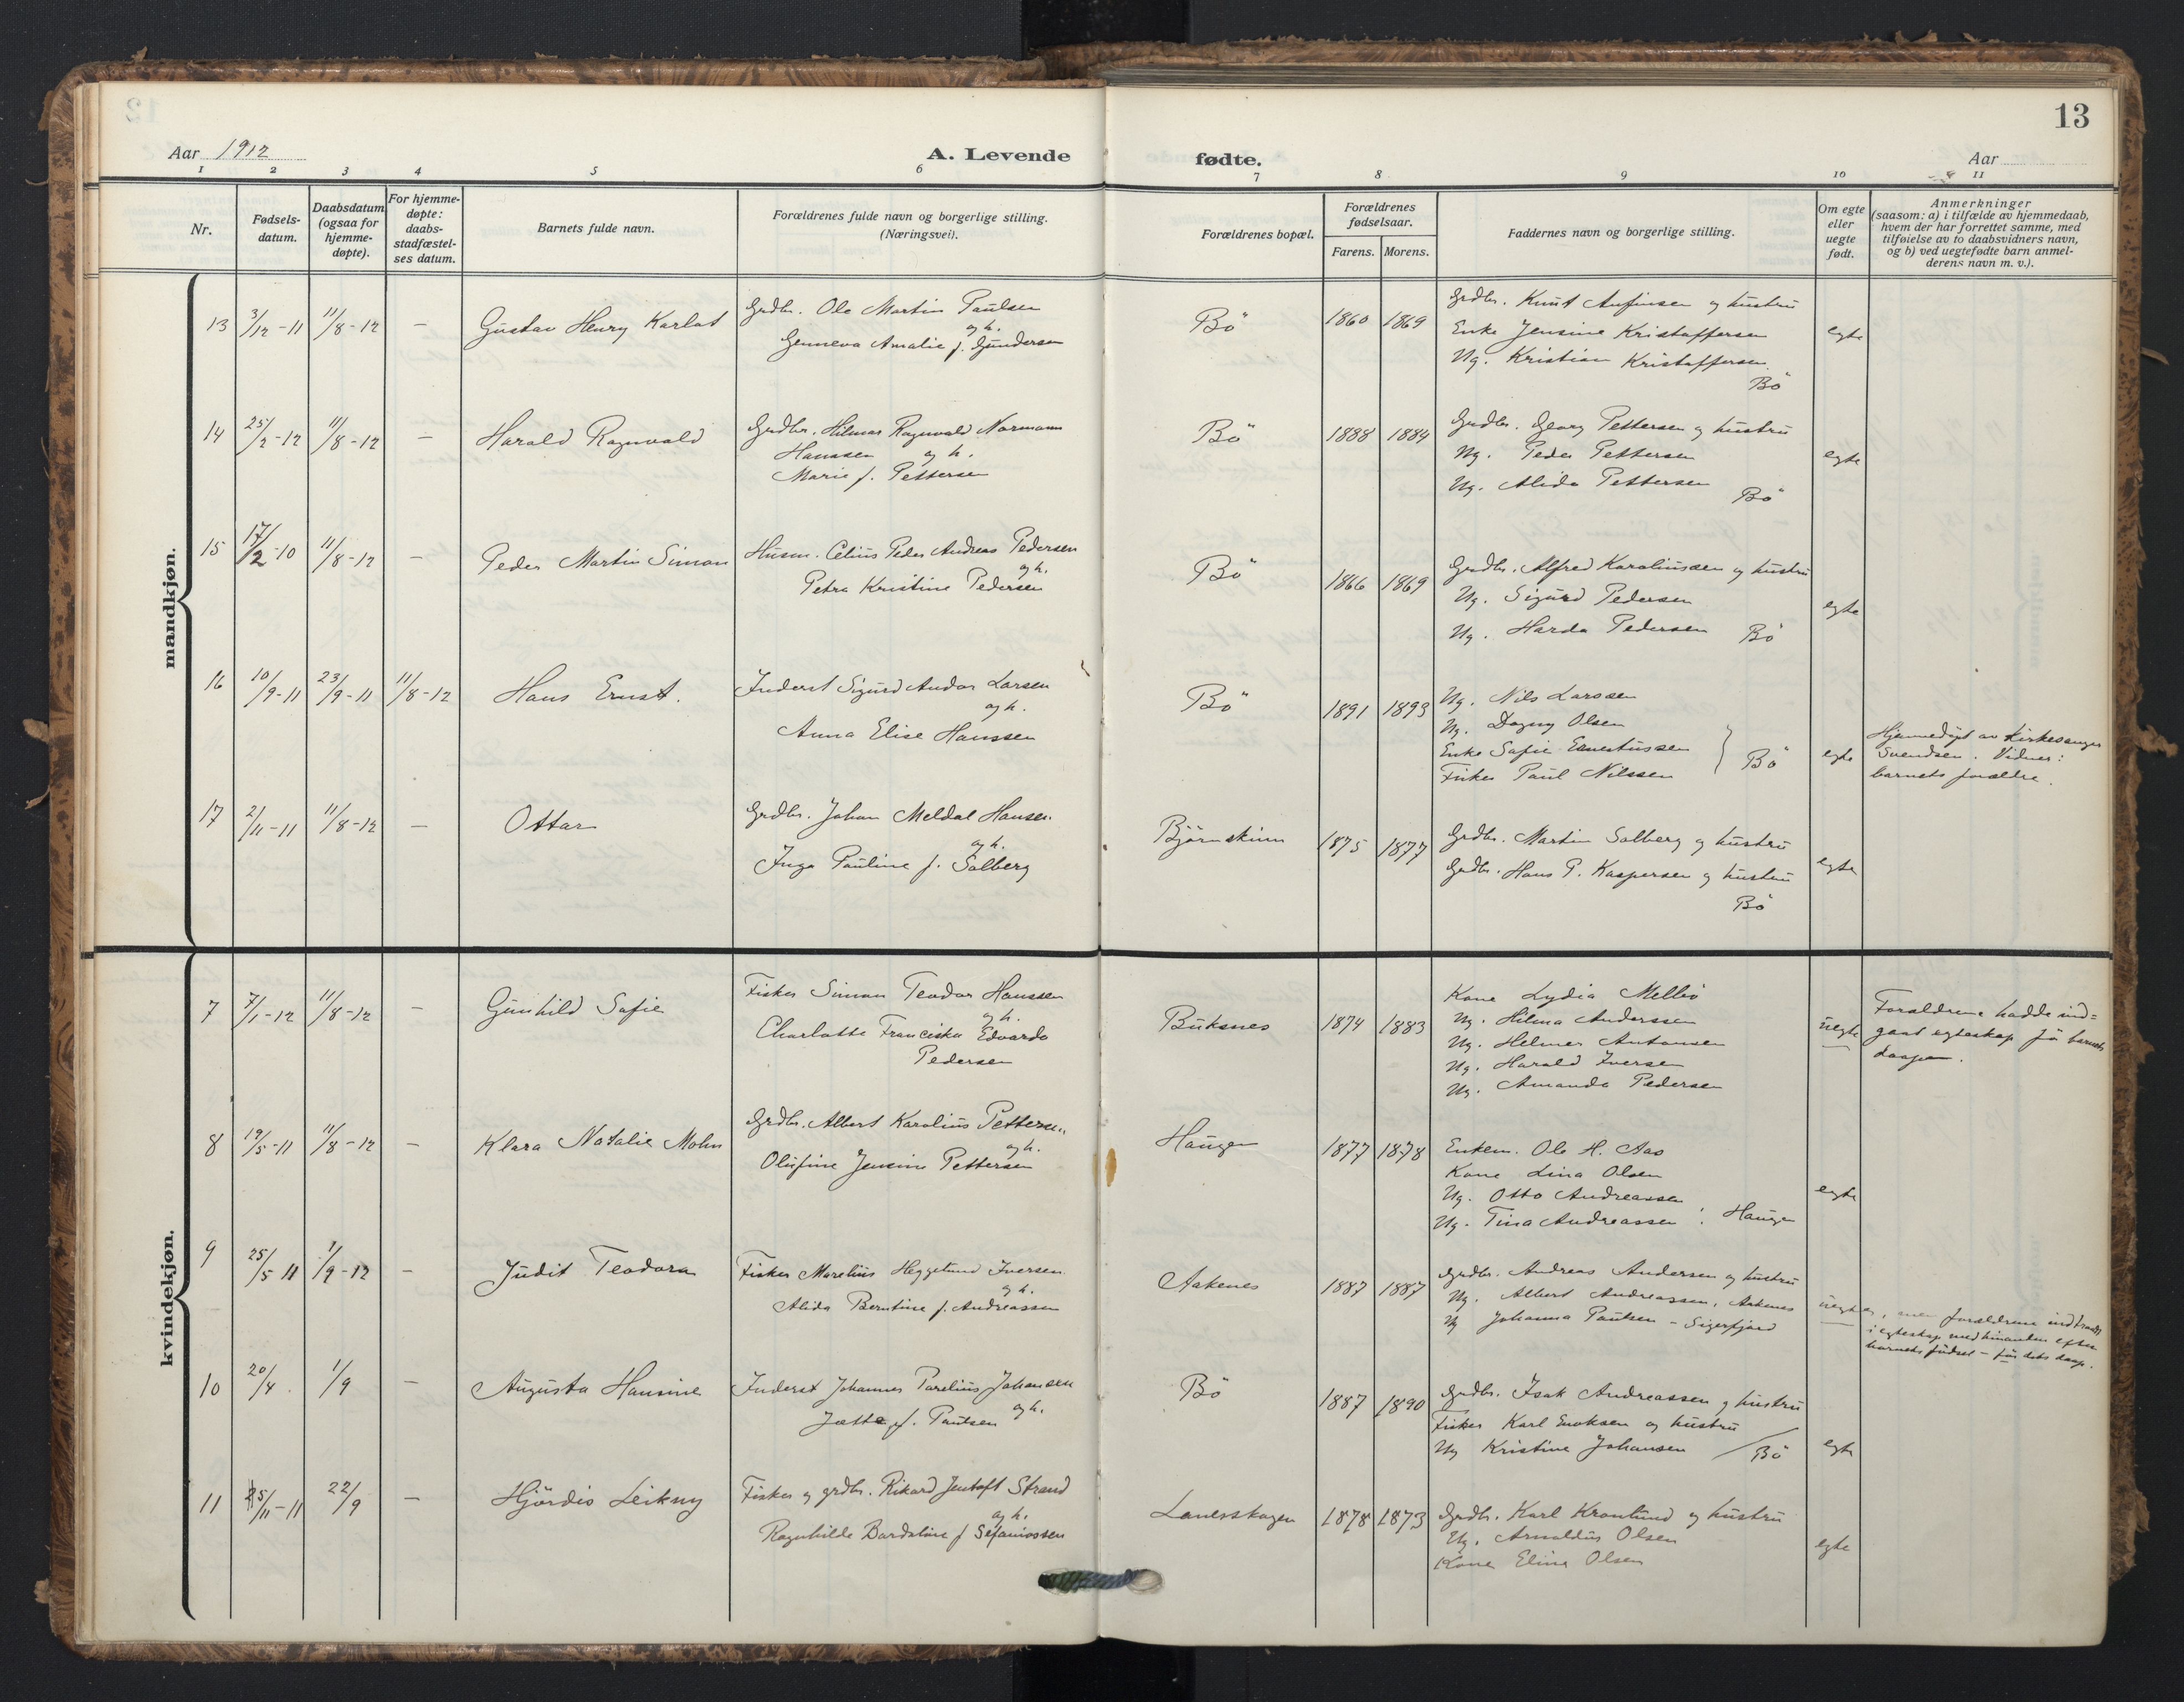 13
Aar 1912
A. Levende
fødte.
Aar
1 2 3 4 5 6 7 8 9 10 11
Nr.
Fødsels-
datum.
Daabsdatum
(ogsaa for
hjemme-
døpte).
For hjemme-
døpte:
daabs-
stadfæstel-
ses datum.
Barnets fulde navn.
Forældrenes fulde navn og borgerlige stilling.
(Næringsvei).
Forældrenes bopæl.
Forældrenes
fødselsaar.
Farens. Morens.
Faddernes navn og borgerlige stilling.
Om egte
eller
uegte
født.
Anmerkninger
(saasom: a) i tilfælde av hjemmedaab,
hvem der har forrettet samme, med
tilføielse av to daabsvidners navn,
og b) ved uegtefødte barn anmel-
derens navn m. v.).
mandkjøn.
13 3/12-11 11/8-12 — Gustav Henry Karlot
Grdbr. Ole Martin Paulsen
og h.
Genneva Amalie f. Gundersen
Bö 1860 1869
Grdbr. Knut Anfinsen og hustru
Enke Jensine Kristoffersen
Ug. Kristian Kristoffersen
Bö
egte
14 25/2-12 11/8-12 — Harald Ragnvald
Grdbr. Hilmar Ragnvald Normann
Hanssen og h.
Marie f. Pettersen
Bö 1888 1884
Grdbr. Georg Pettersen og hustru
Ug. Peder Pettersen
Ug. Alida Pettersen
Bö
egte
15 17/2-10 11/8-12 — Peder Martin Simon
Husm. Celius Peder Andreas Pedersen
og h.
Petra Kristine Pedersen
Bö 1866 1869
Grdbr. Alfred Karoliussen og hustru
Ug. Sigurd Pedersen
Ug. Harda Pedersen Bö
egte
16 10/9-11 23/9-11 11/8-12 Hans Ernst.
Inderst Sigurd Andor Larsen
og h.
Anna Elise Hanssen
Bö 1891 1893
Ug. Nils Larssen
Ug. Dagny Olsen
Enke Safie Ernstussen
Fisker Paul Nilssen
Bö
egte
Hjemmedöpt av Kirkesanger
Svendsen. Vidner:
barnets forældre.
17 2/11-11 11/8-12 — Ottar
Grdbr. Johan Meldal Hansen
og h.
Inga Pauline f. Solberg
Björnskinn 1875 1877
Grdbr. Martin Solberg og hustru
Grdbr. Hans P. Kaspersen og hustru
Bö
egte
kvindekjøn.
7 7/1-12 11/8-12 — Gunhild Sofie
Fisker Simon Teodor Hanssen
og h.
Charlotte Franciska Edvarda
Pedersen
Buksnes 1874 1883
Kone Lydia Mellbö
Ug. Hilma Anderssen
Ug. Helmer Antonsen
Ug. Harald Iversen
Ug. Amanda Pedersen
uegte
Forældrene hadde ind=
gaat egteskap för barnets
daapen.
8 19/5-11 11/8-12 — Klara Natalie Mohn
Grdbr. Albert Karolius Pettersen
og h.
Olufine Jensine Pettersen
Haugen 1877 1878
Enkem. Ole H. Aas
Kone Lina Olsen
Ug. Otto Andreassen
Ug. Tina Andreassen : Haugen
egte
9 25/5 11 1/9-12 — Judit Teodora
Fisker Marelius Heggelund Iversen
og h.
Alida Berntine f. Andreassen
Aakenes 1887 1887
Grdbr. Andreas Andersen og hustru
Ug. Albert Andreassen, Aakenes
Ug Johanna Paulsen - Sigerfjord
uegte, men forældrene indtraadt
i egteskap med hinanden efter
barnets födsel - för dets daap.
10 20/4 1/9 — Augusta Hansine
Inderst Johannes Parelius Johansen
og h.
Jætte f. Paulsen
Bö 1887 1890
Grdbr. Isak Andreassen og hustru
Fisker Karl Enoksen og hustru
Ug Kristine Johansen / Bö
egte
11 25/11-11 22/9 — Hjördis Leikny
Fisker og grdbr. Rikard Jentoft Strand
og h.
Ragnhilde Bardoline f Sefaniassen
Lanesskogen 1878 1873
Grdbr. Karl Kronlund og hustru
Ug. Arnoldus Olsen
Kone Elina Olsen
egte